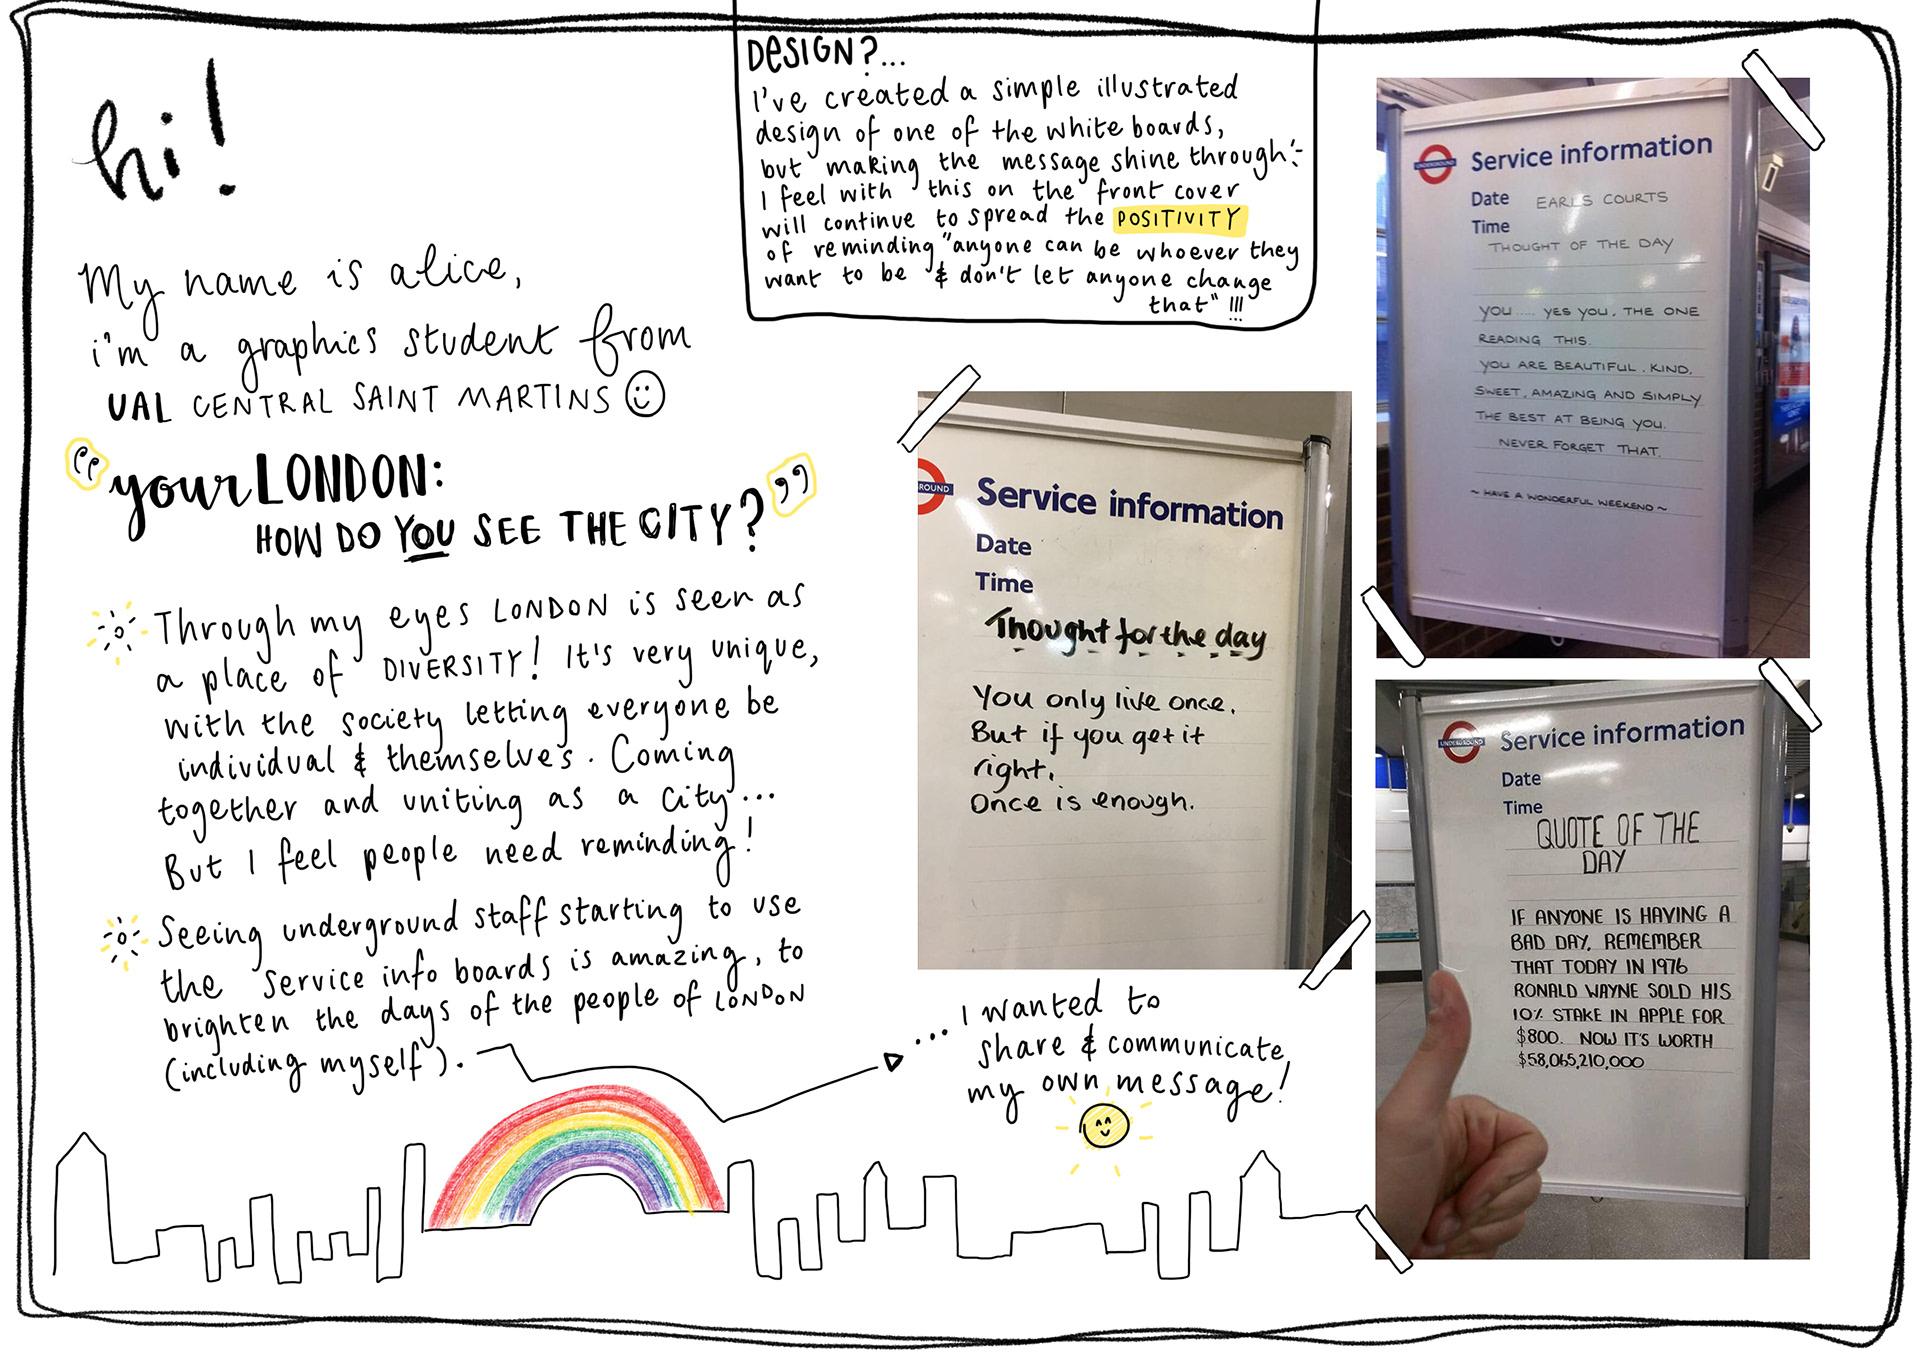 hi!
My name is alice,
i'm a graphics student from
UAL CENTRAL SAINT MARTINS
"your LONDON:
HOW DO YOU SEE THE CITY?"
Through my eyes LONDON is seen as
a place of DIVERSITY! It's very unique,
with the society letting everyone be
individual & themselves. Coming
together and uniting as a city...
But I feel people need reminding!
Seeing underground staff starting to use
the service info boards is amazing, to
brighten the days of the people of LONDON
(including myself).
... I wanted to
share & communicate
my own message!
DESIGN?...
I've created a simple illustrated
design of one of the white boards,
but making the message shine through:-
I feel with this on the front cover
will continue to spread the POSITIVITY
of reminding "anyone can be whoever they
want to be & don't let anyone change
that" !!!
ROUND
Service information
Date
Time
Thought for the day
You only live once.
But if you get it
right.
Once is enough.
UNDERGROUND
Service information
Date EARLS COURTS
Time
THOUGHT OF THE DAY
YOU .... YES YOU, THE ONE
READING THIS.
YOU ARE BEAUTIFUL, KIND,
SWEET, AMAZING AND SIMPLY
THE BEST AT BEING YOU.
NEVER FORGET THAT.
~ HAVE A WONDERFUL WEEKEND ~
UNDERGROUND
Service information
Date
Time
QUOTE OF THE
DAY
IF ANYONE IS HAVING A
BAD DAY, REMEMBER
THAT TODAY IN 1976
RONALD WAYNE SOLD HIS
10% STAKE IN APPLE FOR
$800. NOW IT'S WORTH
$58,065,210,000